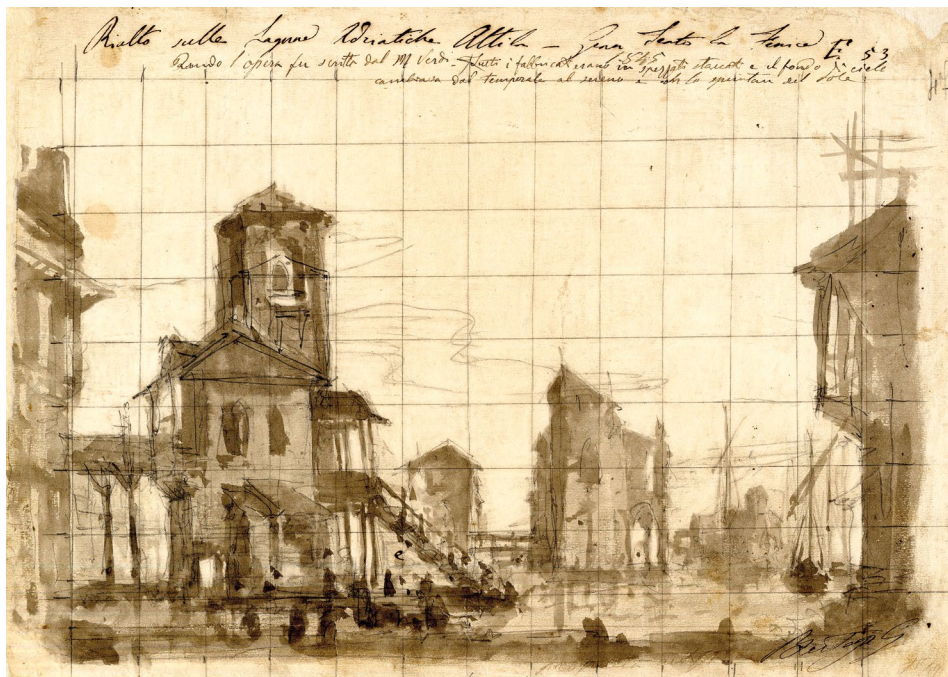 Rialto sulle Lagune Adriatiche Attila – Gran Teatro la Fenice 53
Quando l'opera fu scritta dal M Verdi. Tutti i fabbricati erano in spezzati staccati e il fondo di cielo
cambiava dal temporale al sereno e lo spuntar del sole
Bertoja G